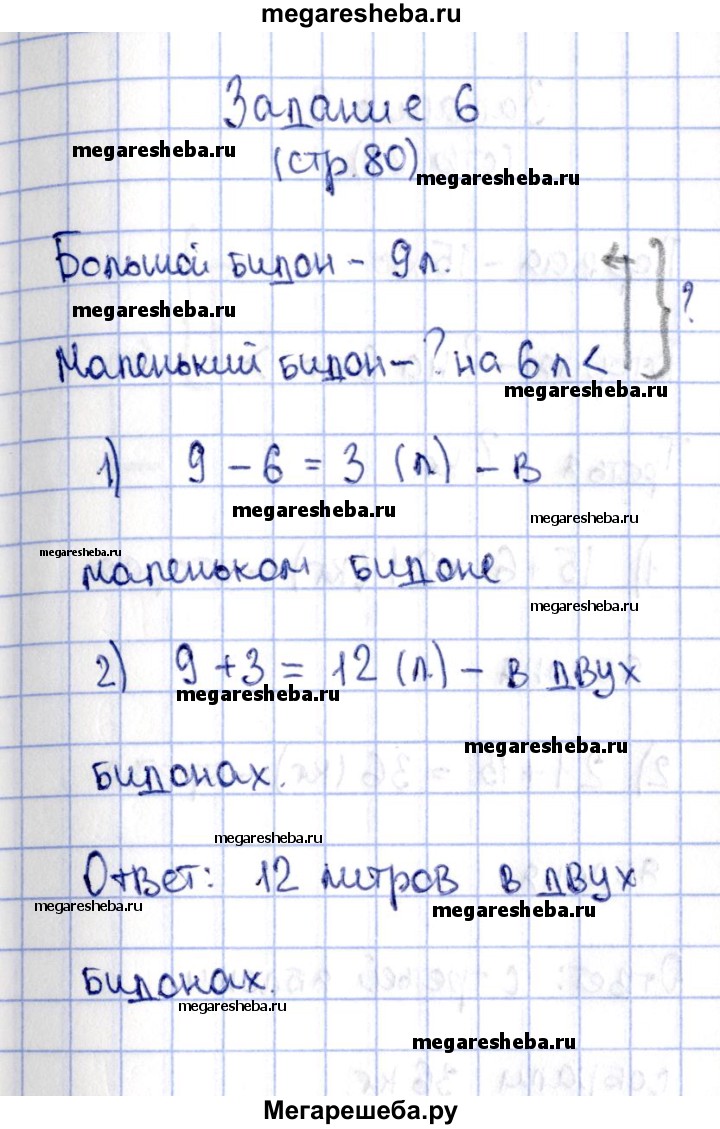 megaresheba.ru
Задание 6
megaresheba.ru
(стр. 80)
megaresheba.ru
Большой бидон – 9 л.
megaresheba.ru
?
Маленький бидон – ? на 6 л <
megaresheba.ru
1) 9 – 6 = 3 (л) – в
megaresheba.ru
megaresheba.ru
megaresheba.ru
маленьком бидоне
megaresheba.ru
2) 9 + 3 = 12 (л) – в двух
megaresheba.ru
megaresheba.ru
бидонах.
megaresheba.ru
Ответ: 12 литров в двух
megaresheba.ru
megaresheba.ru
бидонах.
megaresheba.ru
megaresheba.ru
Мегарешеба.ру